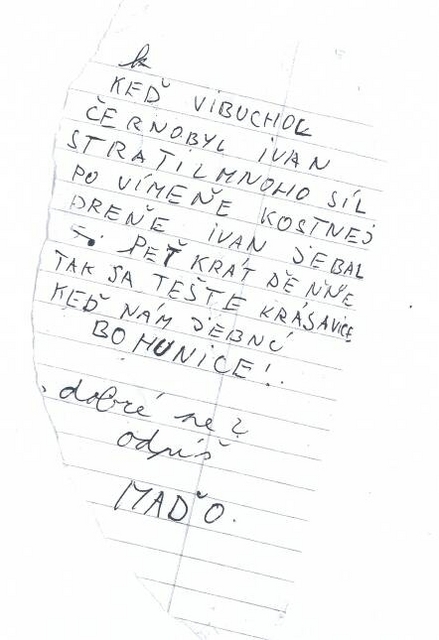 KEĎ VIBUCHOL
ČERNOBYL IVAN
STRATIL MNOHO SÍL
PO VÍMEŇE KOSTNEJ
DREŇE IVAN JEBAL
5. PEŤ KRÁT DĚNŇE
TAK SA TEŠTE KRÁSAVICE
KEĎ NÁM JEBNÚ
BOHUNICE!.
dobré ne?
odpíš
MAĎO.